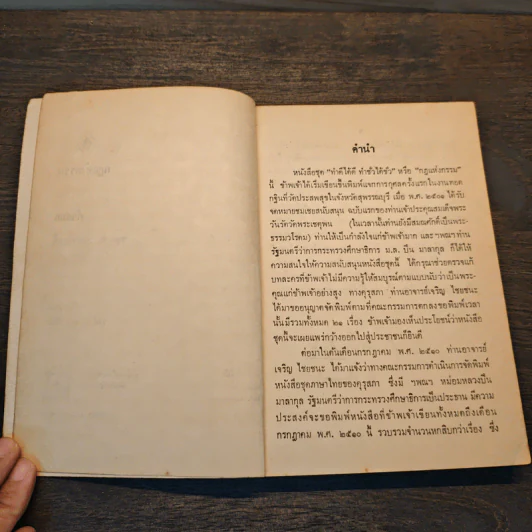 คำนำ
หนังสือชุด "ทำดีได้ดี ทำชั่วได้ชั่ว" หรือ "กฎแห่งกรรม"
นี้ ข้าพเจ้าได้เริ่มเขียนขึ้นพิมพ์แจกการกุศลครั้งแรกในงานทอด
กฐินที่วัดประสพสุขในจังหวัดสุพรรณบุรี เมื่อ พ.ศ. ๒๕๐๑ ได้รับ
จดหมายชมเชยสนับสนุน ฉบับแรกของท่านเจ้าประคุณสมเด็จพระ
วันรัตวัดพระเชตุพน (ในเวลานั้นท่านยังมีสมณศักดิ์เป็นพระ
ธรรมวโรดม) ท่านให้เป็นกำลังใจแก่ข้าพเจ้ามาก และ ฯพณฯ ท่าน
รัฐมนตรีว่าการกระทรวงศึกษาธิการ ม.ล. ปิ่น มาลากุล ก็ได้ให้
ความสนใจให้ความสนับสนุนหนังสือชุดนี้ ได้กรุณาช่วยตรวจแก้
บทละครที่ข้าพเจ้าไม่มีความรู้ให้สมบูรณ์ตามแบบนับว่าเป็นพระ-
คุณแก่ข้าพเจ้าอย่างสูง ทางคุรุสภา ท่านอาจารย์เจริญ ไชยชนะ
ได้มาขออนุญาตจัดพิมพ์ตามที่คณะกรรมการตกลงขอพิมพ์เวลา
นั้นมีรวมทั้งหมด ๒๑ เรื่อง ข้าพเจ้ามองเห็นประโยชน์ว่าหนังสือ
ชุดนี้จะเผยแพร่กว้างออกไปสู่ประชาชนก็ยินดี
ต่อมาในต้นเดือนกรกฎาคม พ.ศ. ๒๕๑๐ ท่านอาจารย์
เจริญ ไชยชนะ ได้มาแจ้งว่าทางคณะกรรมการดำเนินการจัดพิมพ์
หนังสือชุดภาษาไทยของคุรุสภา ซึ่งมี ฯพณฯ หม่อมหลวงปิ่น
มาลากุล รัฐมนตรีว่าการกระทรวงศึกษาธิการเป็นประธาน มีความ
ประสงค์จะขอพิมพ์หนังสือที่ข้าพเจ้าเขียนทั้งหมดถึงเดือน
กรกฎาคม พ.ศ. ๒๕๑๐ นี้ รวบรวมจำนวนหกสิบกว่าเรื่อง ซึ่ง